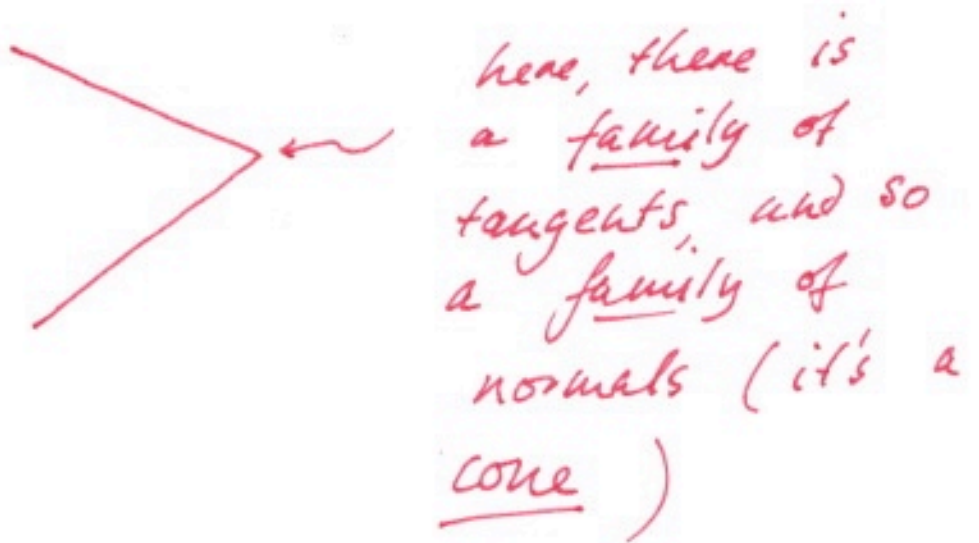 here, there is
a family of
tangents, and so
a family of
normals (it's a
cone)